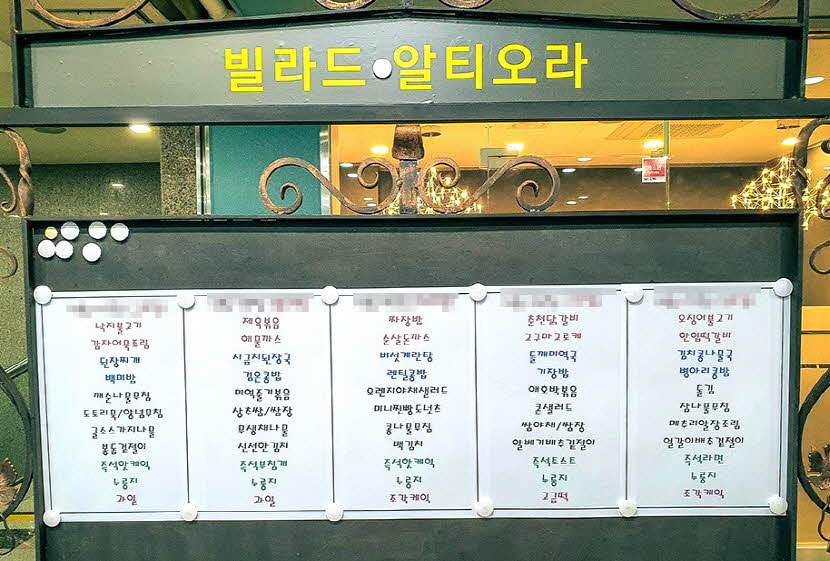 빌라드 알티오라
낙지불고기
감자어묵조림
된장찌개
백미밥
깨순나물무침
도토리묵/양념무침
굴소스가지나물
봄동겉절이
즉석핫케익
누룽지
과일
제육볶음
해물까스
시금치된장국
검은콩밥
미역줄기볶음
상추쌈/쌈장
무생채나물
신선한김치
즉석부침개
누룽지
과일
짜장밥
순살돈까스
버섯계란탕
렌틸콩밥
오렌지야채샐러드
미니찐빵도넛츠
콩나물무침
백김치
즉석핫케익
누룽지
조각케익
춘천닭갈비
고구마고로케
들깨미역국
기장밥
애호박볶음
콘샐러드
쌈야채/쌈장
알배기배추겉절이
즉석토스트
누룽지
고급떡
오징어불고기
한입떡갈비
김치콩나물국
병아리콩밥
돌김
참나물무침
메추리알장조림
얼갈이배추겉절이
즉석라면
누룽지
조각케익